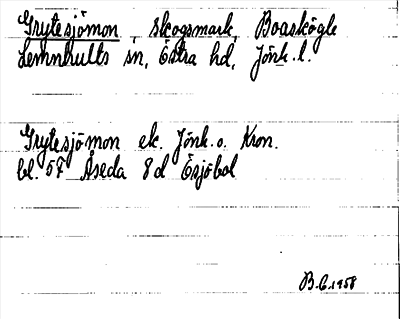 Grytesjömon, skogsmark, Boaskögle
Lemnhults sn, Östra hd, Jönk. l.
Grytesjömon ek. Jönk. o. Kron.
bl. 57 Åseda 8d Ösjöbol
B.C. 1958